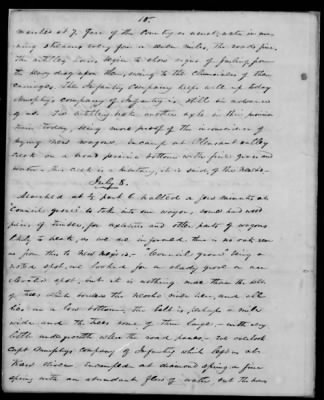 18.
marched at 7. Face of the Country as usual, water in run
ning streams every five or six miles, the roads fine,
the artillery horses begin to show signs of failing from
the heavy drag upon them, owing to the clumsiness of their
carriages. The Infantry Company keeps well up today
Murphy's company of Infantry is still in advance
of us. The artillery broke another axle in their provision
train today, being more proof of the
trying new wagons, encamp at Pleasant valley
Creek on a broad prairie bottom with fine grass and
water. This creek is a tributary, it is said, of the Neosho.
July 8.
Marched at ½ past 6 halted a few minutes at
"Council grove" to take into our wagons, some hard wood
pieces of timber, for axletrees and other parts of wagons
likely to break, as we are informed there is no oak
from this to New Mexico. "Council grove" being a
noted spot, we looked for a shady grove on an
elevated spot, but it is nothing more than the skirt
of trees which borders the Neosho river here, and all
lies in a low bottom, the belt is perhaps a mile
wide and the trees some of them large, with very
little undergrowth where the road passes. We overtook
Capt Murphy's company of Infantry which left us at
Kaw river encamped at diamond spring a fine
spring with an abundant flow of water, but the